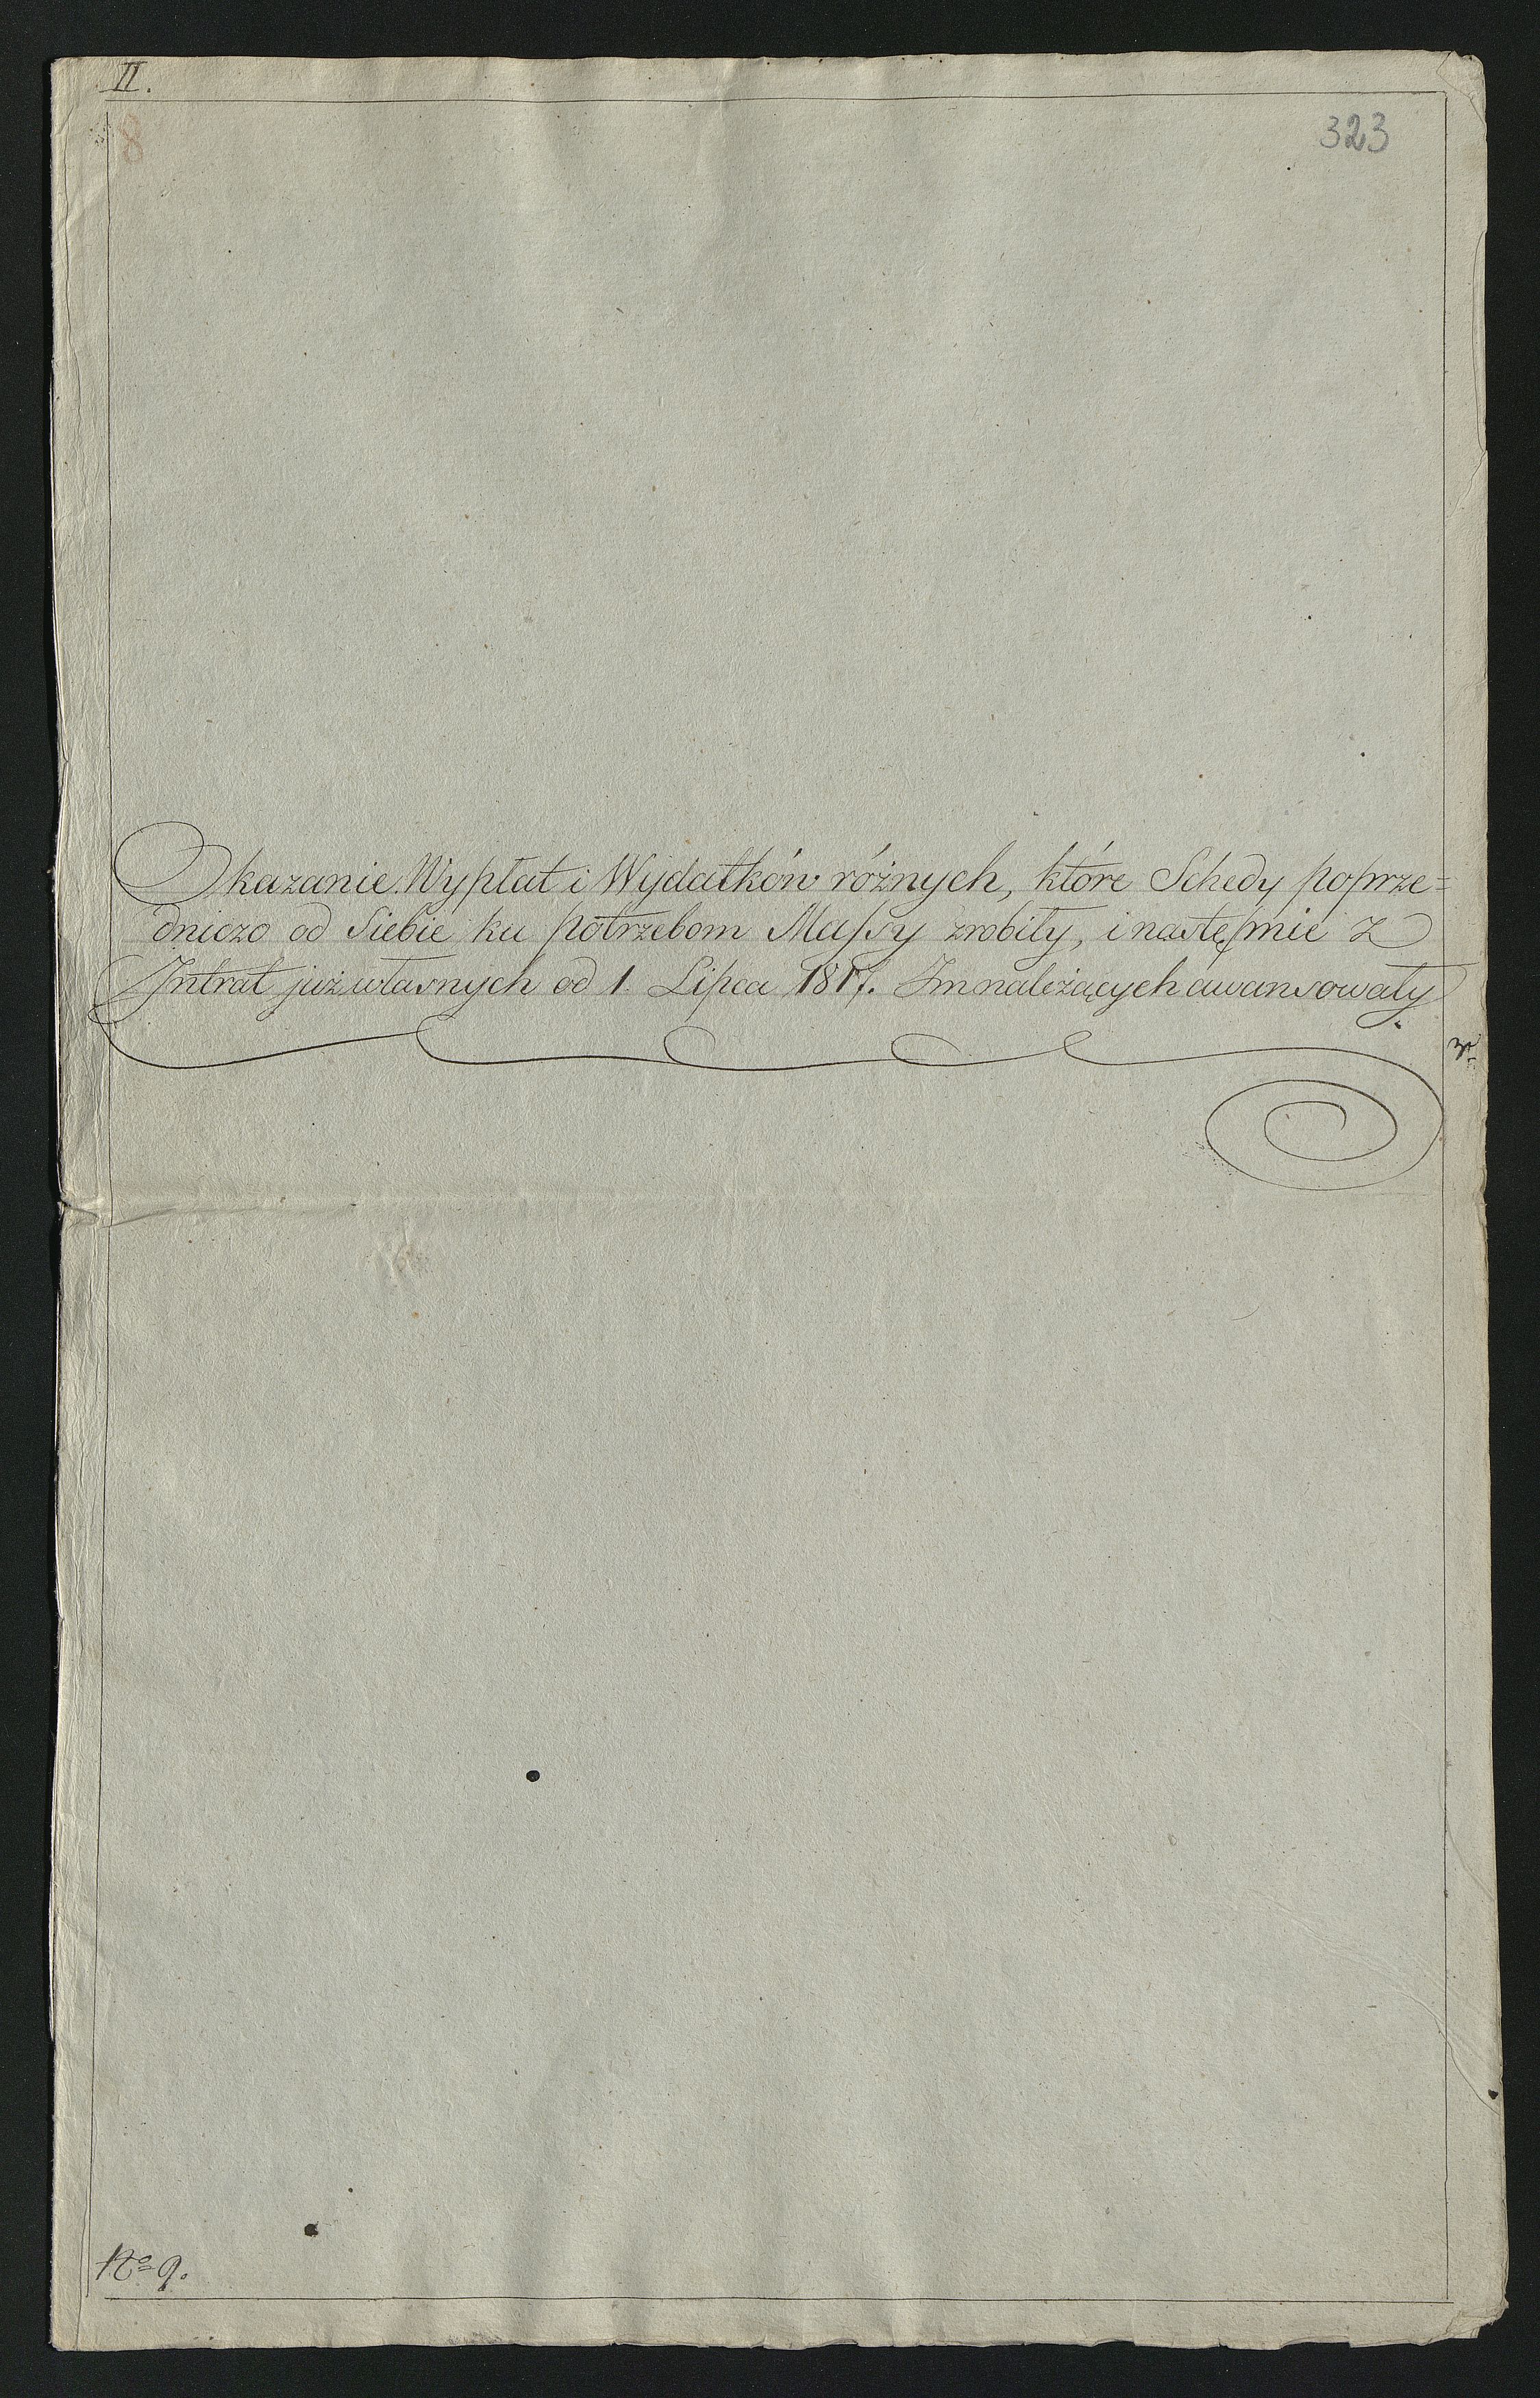 II.
8
323
Okazanie Wypłat i Wydatków różnych, które Schedy poprze=
dniczo od Siebie ku potrzebom Massy zrobiły, i następnie z
Intrat już własnych od 1. Lipca 1817. Im należących awansowały.
No 9.